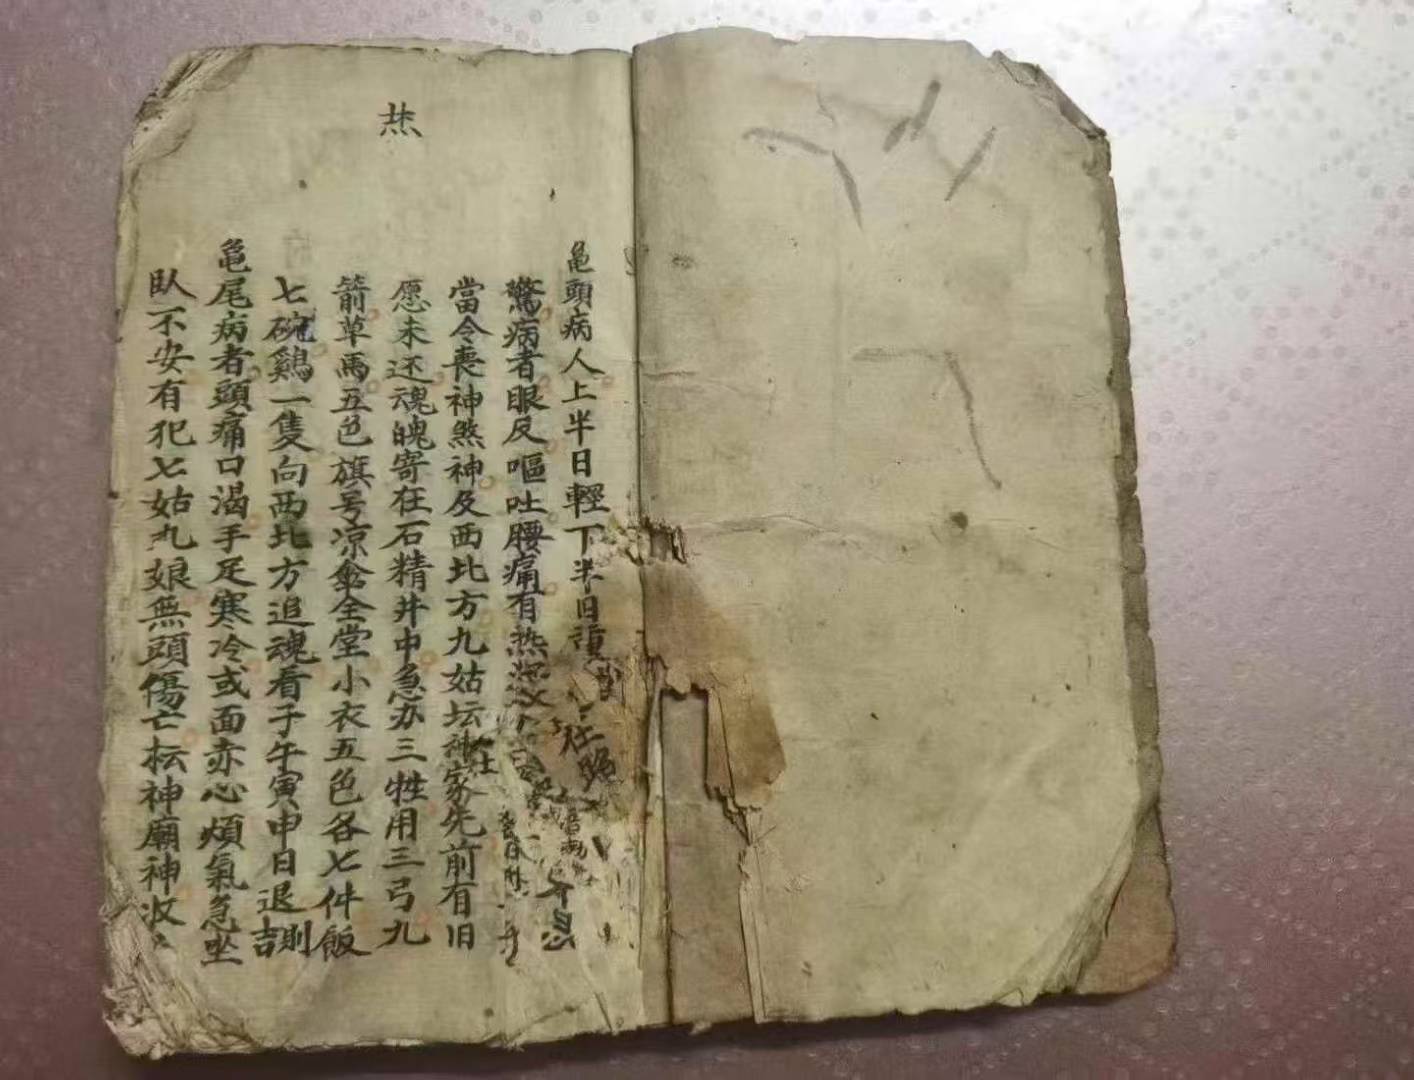 热
龜頭病人上半日輕下半日重
驚病者眼反嘔吐腰痛有热
當令喪神煞神及西北方九姑坛神家先前有旧
愿未还魂魄寄在石精井中急办三牲用三弓九
箭草馬五色旗号凉傘全堂小衣五色各七件飯
七碗鷄一隻向西北方追魂看子午寅申日退則吉
龜尾病者頭痛口渴手足寒冷或面赤心煩氣急坐
臥不安有犯七姑九娘無頭傷亡坛神廟神收